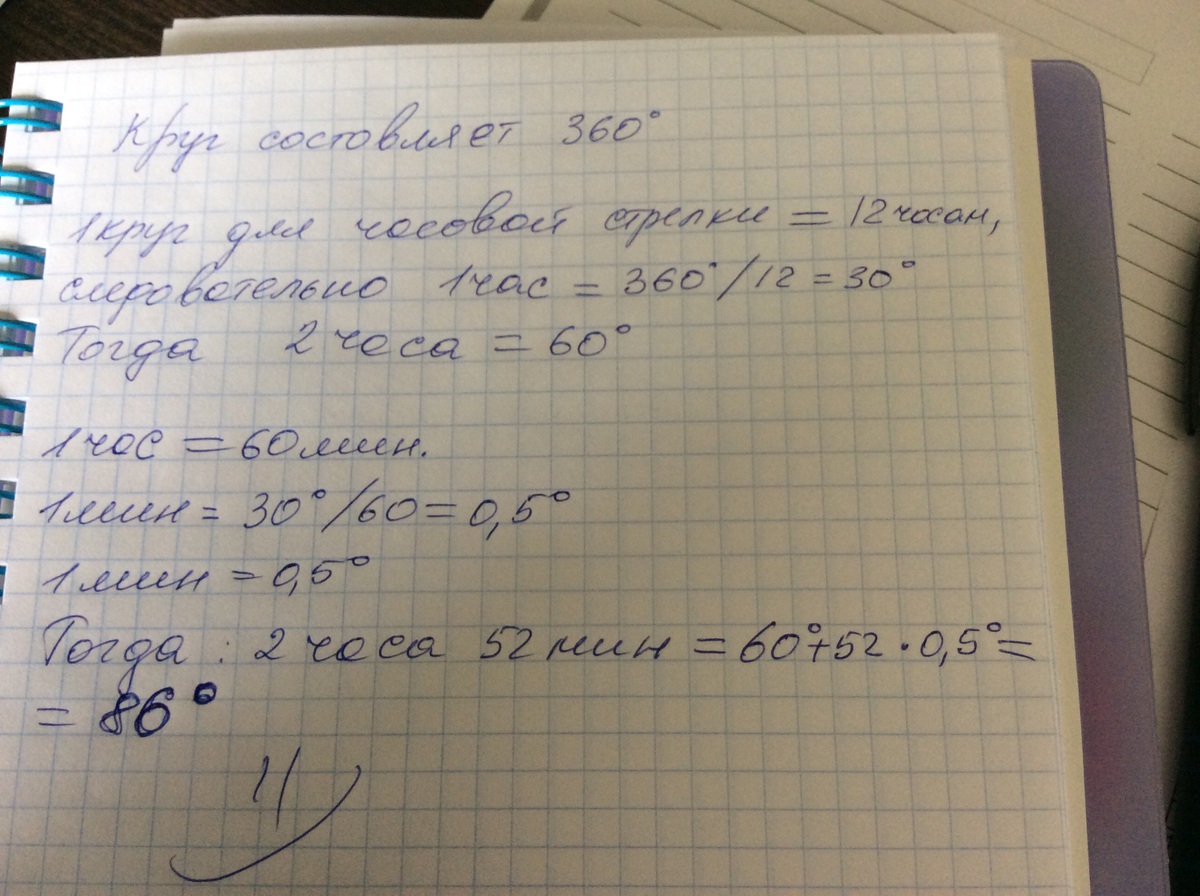 Круг составляет 360°
1 круг для часовой стрелки = 12 часам,
следовательно 1 час = 360°/12 = 30°
Тогда 2 часа = 60°
1 час = 60 мин.
1 мин = 30°/60 = 0,5°
1 мин = 0,5°
Тогда: 2 часа 52 мин = 60°+52·0,5°=
= 86°